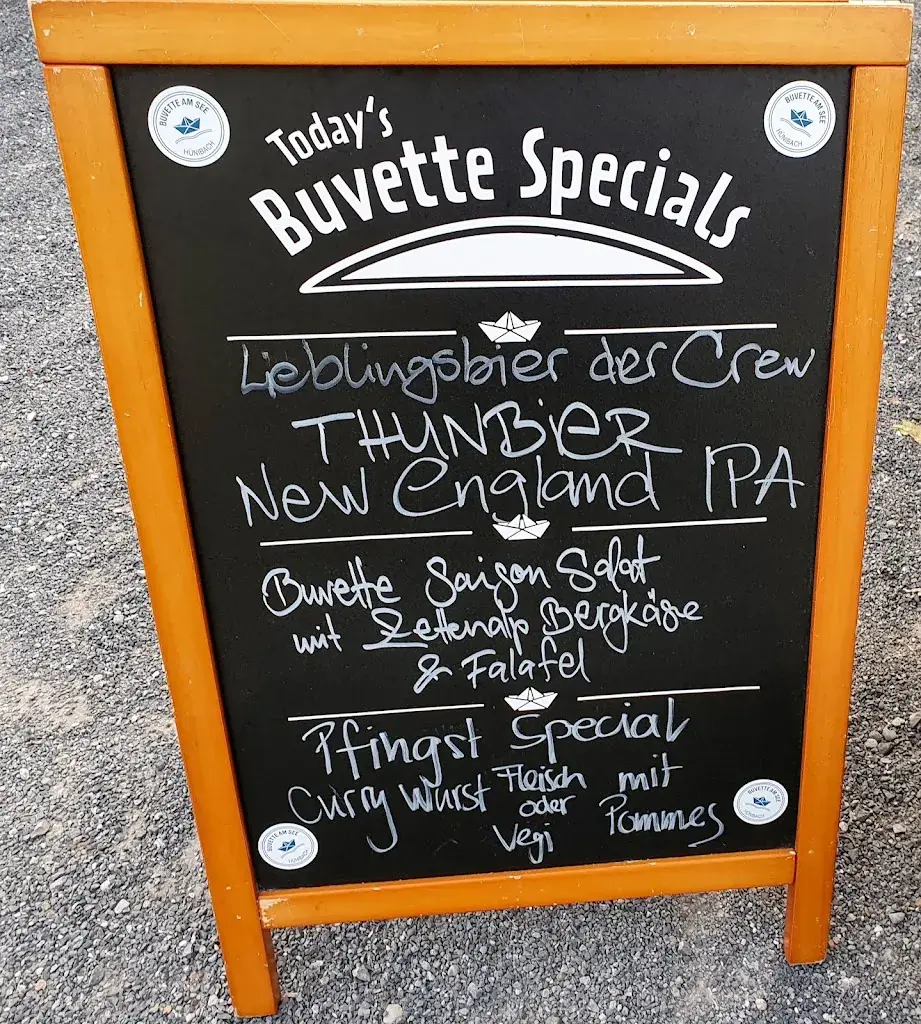 BUVETTE AM SEE
HÜNIBACH
BUVETTE AM SEE
HÜNIBACH
Today's
Buvette Specials
Lieblingsbier der Crew
THUNBiER
New England IPA
Buvette Saison Salat
mit Zettenalp Bergkäse
& Falafel
Pfingst Special
Curry Wurst Fleisch oder Vegi mit Pommes
BUVETTE AM SEE
HÜNIBACH
BUVETTE AM SEE
HÜNIBACH